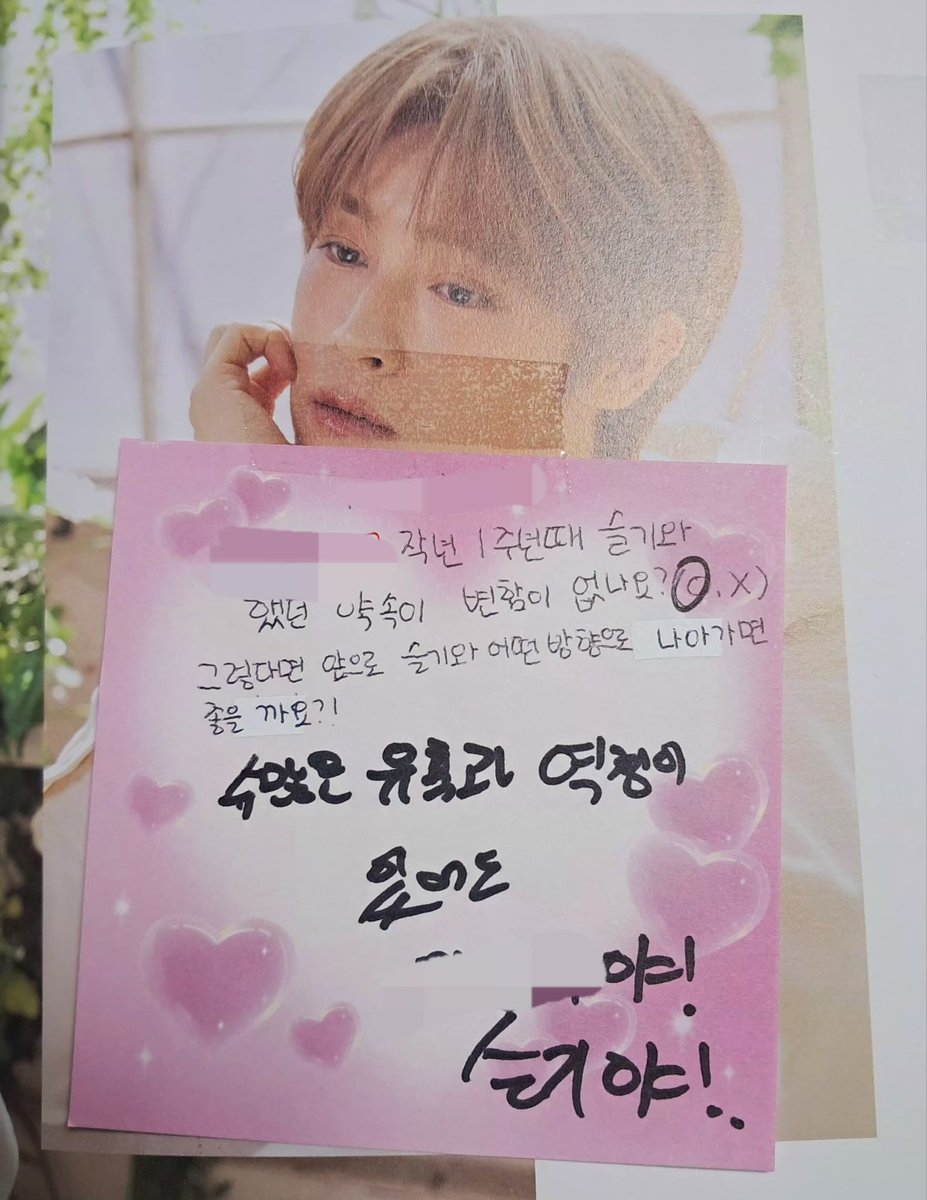 작년 1주년때 슬기와
했던 약속이 변함이 없나요? (O, X)
그렇다면 앞으로 슬기와 어떤 방향으로 나아가면
좋을 까요?!
수많은 유혹과 역경이
있어도
야!
슬기야!..